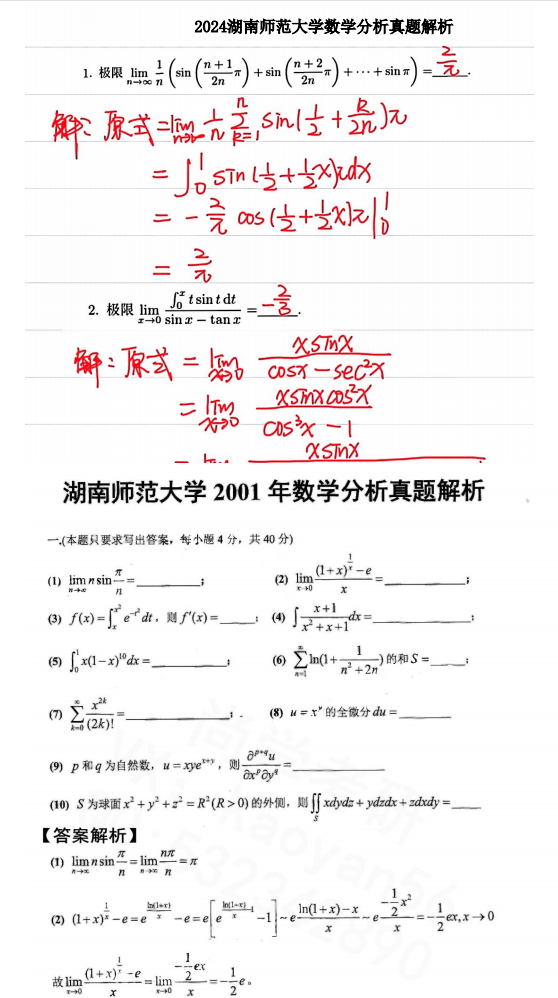 2024湖南师范大学数学分析真题解析
1. 极限 lim_{n→∞} 1/n (sin((n+1)/(2n) π) + sin((n+2)/(2n) π) + ⋯ + sin π) = 2/π.
解：原式=lim_{n→∞} 1/n ∑_{k=1}^{n} sin(1/2 + k/2n)π
= ∫_0^1 sin(1/2+1/2x)πdx
= −2/π cos(1/2+1/2x)π|_0^1
= 2/π
2. 极限 lim_{x→0} (∫_0^x t sin t dt)/(sin x − tan x) = −2/3.
解：原式 = lim_{x→0} xsinx/(cosx − sec²x)
= lim_{x→0} xsinxcos²x/(cos³x − 1)
xsinx
湖南师范大学 2001 年数学分析真题解析
一.(本题只要求写出答案，每小题 4 分，共 40 分)
(1) lim_{n→∞} n sin π/n = ______;
(2) lim_{x→0} ((1+x)^{1/x} − e)/x = ______;
(3) f(x) = ∫_x^{x²} e^{−t²} dt，则 f′(x) = ______;
(4) ∫ (x+1)/(x²+x+1) dx = ______;
(5) ∫_0^1 x(1−x)^{10} dx = ______;
(6) ∑_{n=1}^{∞} ln(1+ 1/(n²+2n)) 的和 S = ____;
(7) ∑_{k=0}^{∞} x^{2k}/(2k)! = ______;
(8) u = x^y 的全微分 du = ______
(9) p 和 q 为自然数，u = xye^{x+y}，则 ∂^{p+q}u/∂x^p∂y^q = ______
(10) S 为球面 x² + y² + z² = R²(R > 0) 的外侧，则 ∬_S xdydz + ydzdx + zdxdy = ____
【答案解析】
(1) lim_{n→∞} n sin π/n = lim_{n→∞} nπ/n = π
(2) (1+x)^{1/x} − e = e^{ln(1+x)/x} − e = e[e^{ln(1−x)/x − 1} − 1] ~ e·(ln(1+x) − x)/x ~ e·(−1/2 x²)/x = −1/2 ex, x → 0
故 lim_{x→0} ((1+x)^{1/x} − e)/x = lim_{x→0} (−1/2 ex)/x = −1/2 e。